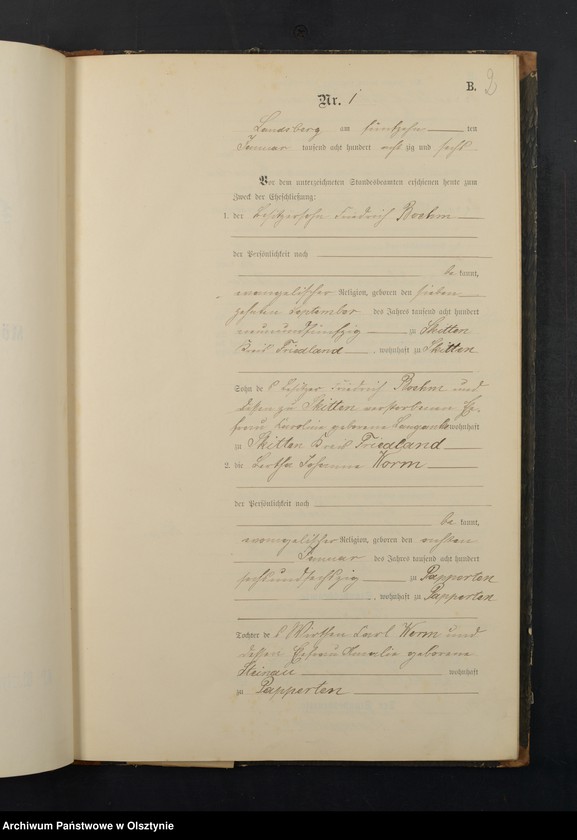 B. 2
Nr. 1
Landsberg am fünfzehn ten
Januar tausend acht hundert acht zig und sechs
Vor dem unterzeichneten Standesbeamten erschienen heute zum
Zweck der Eheschließung:
1. der Besitzersohn Friedrich Boehm
der Persönlichkeit nach
be kannt,
evangelischer Religion, geboren den sieben
zehnten September des Jahres tausend acht hundert
neunundfünfzig zu Skitten
Kreis Friedland, wohnhaft zu Skitten
Sohn des Besitzer Friedrich Boehm und
dessen zu Skitten verstorbenen Ehe-
frau Karoline geborene wohnhaft
zu Skitten Kreis Friedland
2. die Bertha Johanna Worm
der Persönlichkeit nach
be kannt,
evangelischer Religion, geboren den
Januar des Jahres tausend acht hundert
sechsundsechszig zu Papperten
, wohnhaft zu Papperten
Tochter des Wirthen Carl Worm und
dessen Ehefrau Amalie geborene
Steinau wohnhaft
zu Papperten
Archiwum Państwowe w Olsztynie